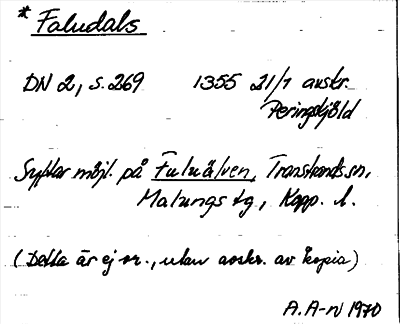 * Faludals
DN 2, s. 269 1355 21/7 avskr.
Peringskjöld
Syftar möjl. på Fuluälven, Transtrands sn,
Malungs tg., Kopp. l.
(Detta är ej or., utan avskr. av kopia)
A. A-n 1970